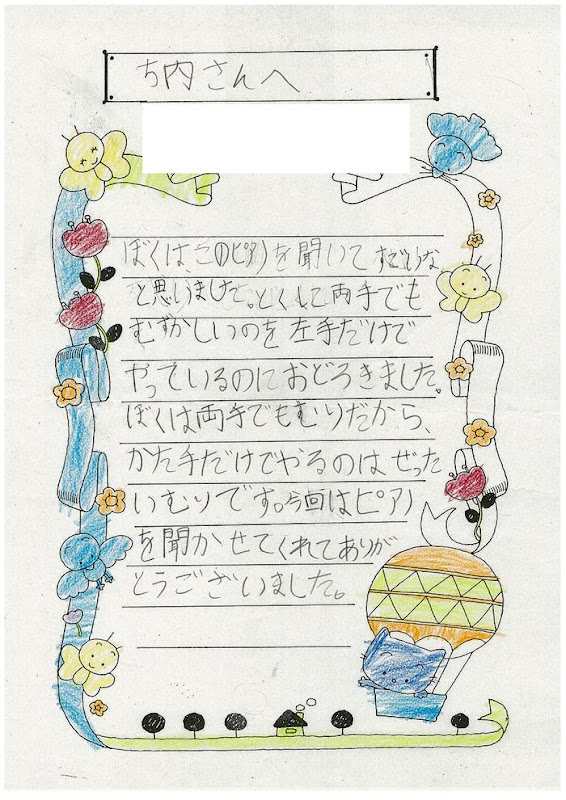 ち内さんへ
ぼくは、このピアノを聞いてすごいな
と思いました。とくに両手でも
むずかしいのを左手だけで
やっているのにおどろきました。
ぼくは両手でもむりだから、
かた手だけでやるのはぜった
いむりです。今回はピアノ
を聞かせてくれてありが
とうございました。